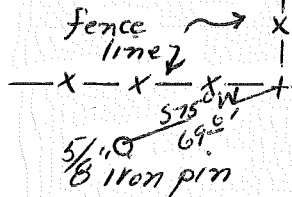 fence
line
S75°W
69.0'
5/8" Iron pin